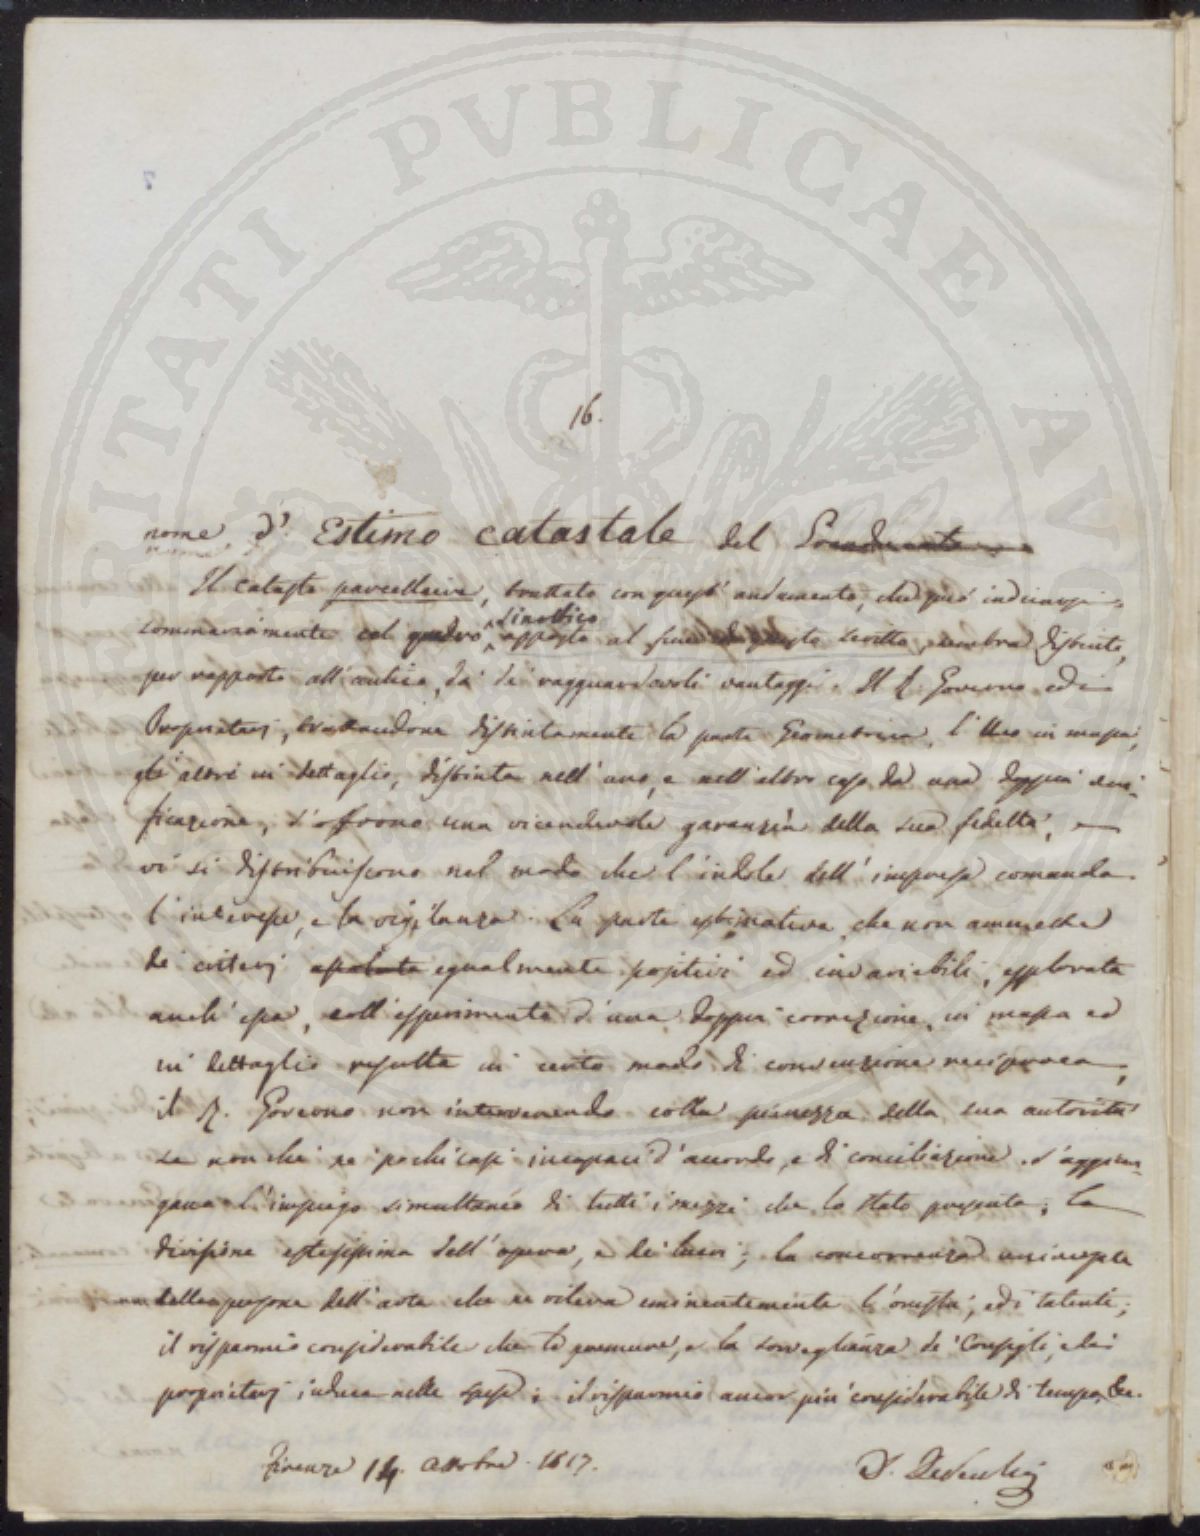 VERITATI PVBLICAE AVC
16.
nome d' Estimo catastale del Granducato
Il catasto parcellario, trattato con quest' andamento, che può
sommariamente col quadro sinottico apposto al fine di questo scritto, sembra distinto,
per rapporto all' antico, da' di ragguardevoli vantaggi. Il R. Governo ed i
Proprietarj, trattandone distintamente la parte Geometrica, l' Uno in mapa,
gli altri in dettaglio, distinta nell' uno, e nell' altro caso da una doppia
ficazione, s'offrono una vicendevole garanzia della sua fedeltà, e
vi si distribuiscono nel modo che l' indole dell' impresa comanda
l' interesse, e la vigilanza. La parte estimativa, che non ammette
de' criterj assoluta egualmente positivi ed invariabili, esplorata
anch' essa, coll' esperimento d' una doppia correzione, in mapa ed
in dettaglio resulta in certo modo di convenzione reciproca,
il R. Governo non intervenendo colla pienezza della sua autorità
se non che ne' pochi casi incapaci d' accordo, e di conciliazione. S' aggiun-
gano l' impiego simultaneo di tutti i mezzi che lo stato presenta; la
divisione estesissima dell' opera, e dei lucri; la concorrenza
delle persone dell' arte che ne rileva eminentemente l' onestà, ed i talenti;
il risparmio considerabile che le premure, e la sorveglianza de' Consigli, e dei
proprietarj induce nelle spese; il risparmio ancor più considerabile di tempo, &c.
Firenze 14. Ottobre 1817.